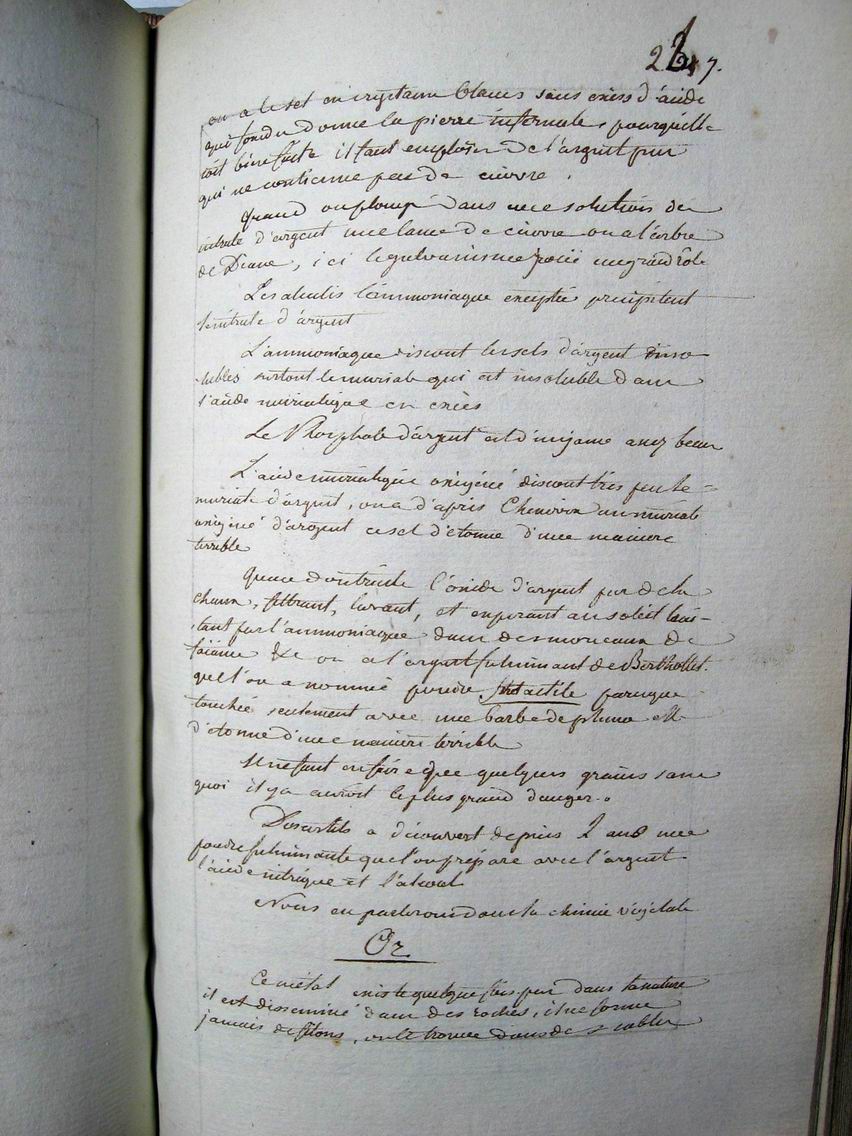 247.
on a le sel en cristaux blancs sans excès d'acide
qui fondu donne la pierre infernale, pour qu'elle
soit bien faite il faut emploïer de l'argent pur
qui ne contienne pas de cuivre.
Quand on plonge dans une solution de
nitrate d'argent une lame de cuivre on a l'arbre
de Diane, ici le galvanisme joue un grand rôle
Les alcalis l'ammoniaque exceptée precipitent
le nitrate d'argent
L'ammoniaque dissout les sels d'argent inso-
lubles surtout le muriate qui est insoluble dans
l'acide muriatique en excès
Le Phosphate d'argent est d'un jaune assez beau
L'acide muriatique oxigéné dissout très peu le
muriate d'argent, on a d'après Chenevix un muriate
oxigéné d'argent ce sel détonne d'une maniere
terrible
Quand on traite l'oxide d'argent par de la
chaux, filtrant, lavant, et exposant au soleil trai-
tant par l'ammoniaque dans des morceaux de
faïance &c on a l'argent fulminant de Berthollet.
que l'on a nommé poudre parceque
touchée seulement avec une barbe de plume elle
détonne d'une maniere terrible
Il ne faut en faire que quelques grains sans
quoi il y a auroit le plus grand danger.
Descotils a découvert depuis 2 ans une
poudre fulminante que l'on prépare avec l'argent
l'acide nitrique et l'alcool
Nous en parlerons dans la chimie végétale
Or
Ce métal existe quelque fois pur dans la nature
il est disseminé dans des roches, il ne forme
jamais de filons, on le trouve dans des sables